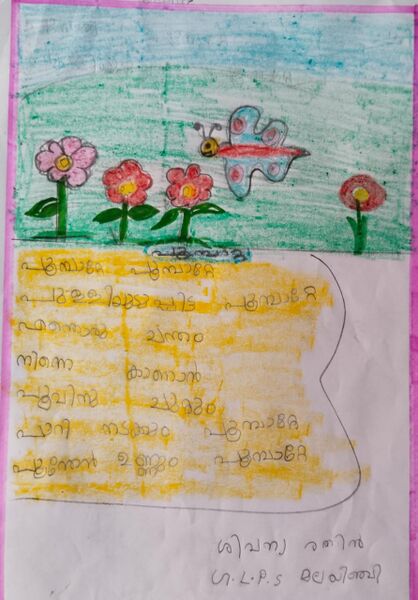 പൂമ്പാറ്റ
പൂമ്പാറ്റേ പൂമ്പാറ്റേ
പുള്ളിയുടുപ്പിട്ട പൂമ്പാറ്റേ
എന്തൊരു ചന്തം
നിന്നെ കാണാൻ
പൂവിനു ചുറ്റും
പാറി നടക്കും പൂമ്പാറ്റേ
പൂന്തേൻ ഉണ്ണും പൂമ്പാറ്റേ
ശിവന്യ രതിൻ
G.L.P.S മലയിഞ്ചി